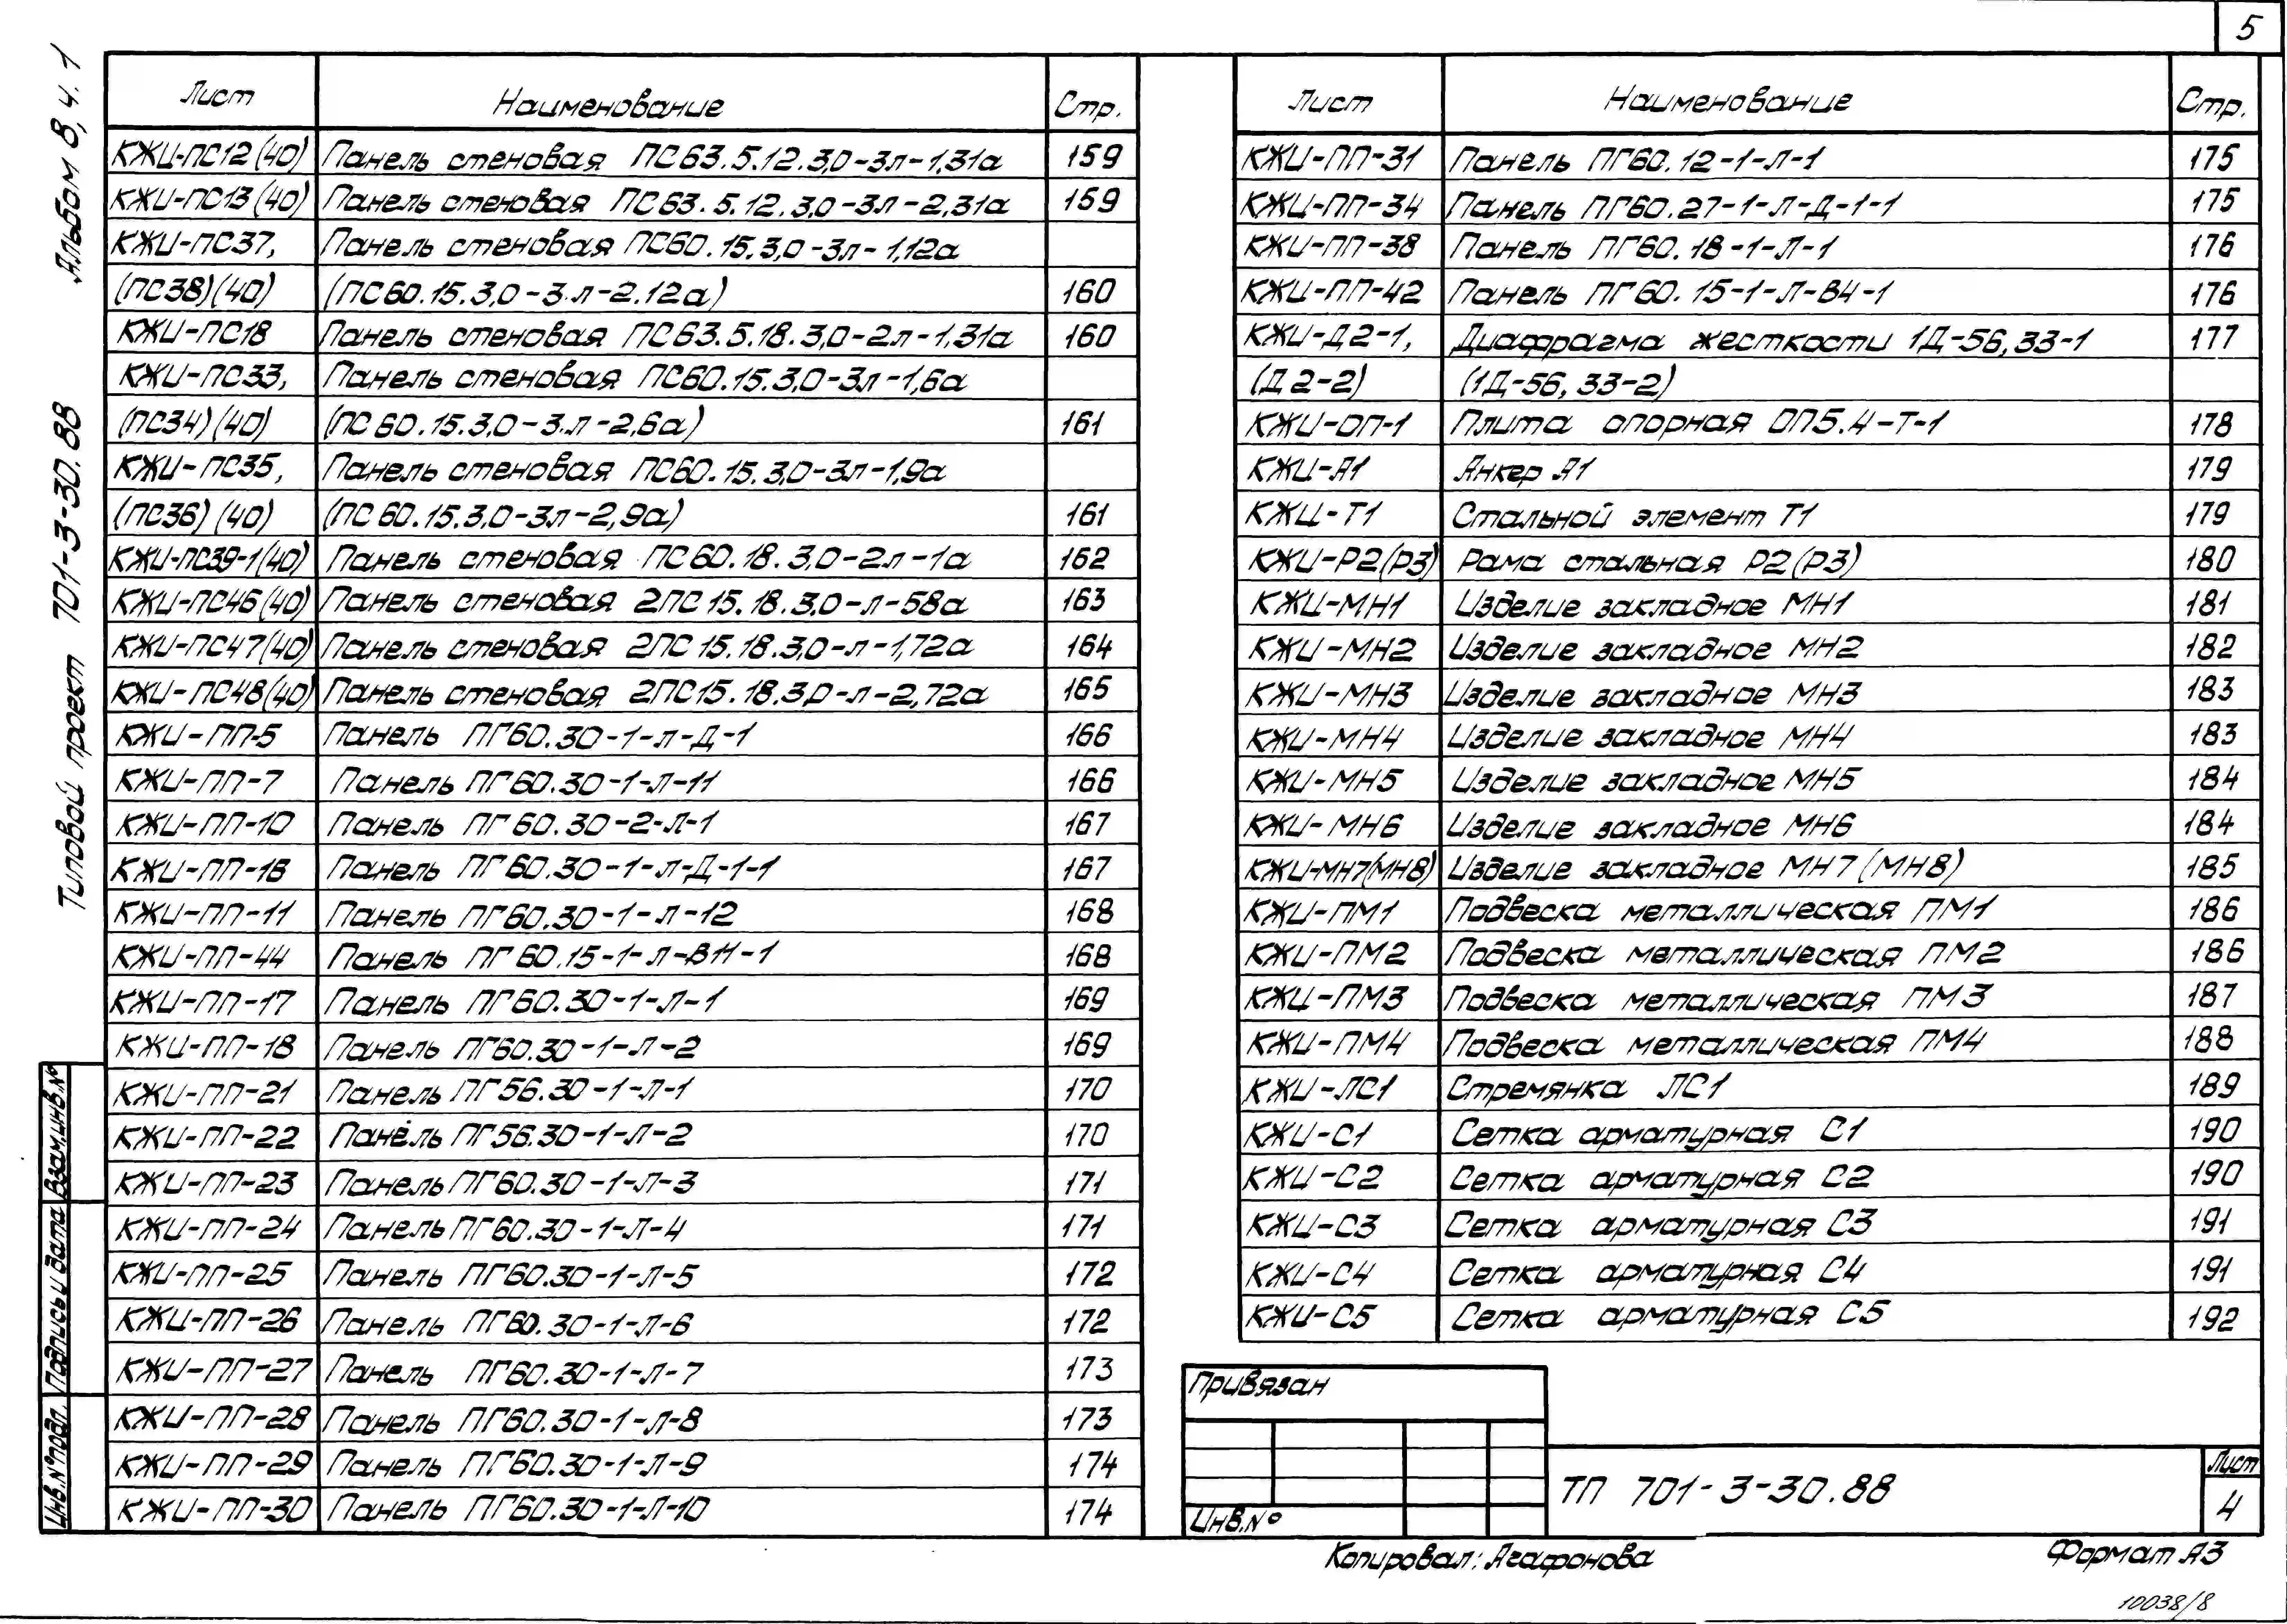 5
Альбом 8, ч. 1
Типовой проект 701-3-30.88
Лист Наименование Стр.
КЖИ-ПС12(40) Панель стеновая ПС63.5.12.3,0-3л-1,31а 159
КЖИ-ПС13(40) Панель стеновая ПС63.5.12.3,0-3л-2,31а 159
КЖИ-ПС37, Панель стеновая ПС60.15.3,0-3л-1,12а
(ПС38)(40) (ПС60.15.3,0-3.л-2.12а) 160
КЖИ-ПС18 Панель стеновая ПС63.5.18.3,0-2л-1,31а 160
КЖИ-ПС33, Панель стеновая ПС60.15.3,0-3л-1,6а
(ПС34)(40) (ПС60.15.3,0-3.л-2,6а) 161
КЖИ-ПС35, Панель стеновая ПС60.15.3,0-3л-1,9а
(ПС36)(40) (ПС60.15.3,0-3л-2,9а) 161
КЖИ-ПС39-1(40) Панель стеновая ПС60.18.3,0-2л-1а 162
КЖИ-ПС46(40) Панель стеновая 2ПС15.18.3,0-л-58а 163
КЖИ-ПС47(40) Панель стеновая 2ПС15.18.3,0-л-1,72а 164
КЖИ-ПС48(40) Панель стеновая 2ПС15.18.3,0-л-2,72а 165
КЖИ-ПП-5 Панель ПГ60.30-1-л-Д-1 166
КЖИ-ПП-7 Панель ПГ60.30-1-Л-11 166
КЖИ-ПП-10 Панель ПГ60.30-2-Л-1 167
КЖИ-ПП-16 Панель ПГ60.30-1-л-Д-1-1 167
КЖИ-ПП-11 Панель ПГ60.30-1-Л-12 168
КЖИ-ПП-44 Панель ПГ60.15-1-л-В11-1 168
КЖИ-ПП-17 Панель ПГ60.30-1-Л-1 169
КЖИ-ПП-18 Панель ПГ60.30-1-Л-2 169
КЖИ-ПП-21 Панель ПГ56.30-1-Л-1 170
КЖИ-ПП-22 Панель ПГ56.30-1-Л-2 170
КЖИ-ПП-23 Панель ПГ60.30-1-Л-3 171
КЖИ-ПП-24 Панель ПГ60.30-1-Л-4 171
КЖИ-ПП-25 Панель ПГ60.30-1-Л-5 172
КЖИ-ПП-26 Панель ПГ60.30-1-Л-6 172
КЖИ-ПП-27 Панель ПГ60.30-1-Л-7 173
КЖИ-ПП-28 Панель ПГ60.30-1-Л-8 173
КЖИ-ПП-29 Панель ПГ60.30-1-Л-9 174
КЖИ-ПП-30 Панель ПГ60.30-1-Л-10 174
Лист Наименование Стр.
КЖИ-ПП-31 Панель ПГ60.12-1-Л-1 175
КЖИ-ПП-34 Панель ПГ60.27-1-Л-Д-1-1 175
КЖИ-ПП-38 Панель ПГ60.18-1-Л-1 176
КЖИ-ПП-42 Панель ПГ60.15-1-Л-В4-1 176
КЖИ-Д2-1, Диафрагма жесткости 1Д-56,33-1 177
(Д2-2) (1Д-56,33-2)
КЖИ-ОП-1 Плита опорная ОП5.4-Т-1 178
КЖИ-А1 Анкер А1 179
КЖИ-Т1 Стальной элемент Т1 179
КЖИ-Р2(Р3) Рама стальная Р2(Р3) 180
КЖИ-МН1 Изделие закладное МН1 181
КЖИ-МН2 Изделие закладное МН2 182
КЖИ-МН3 Изделие закладное МН3 183
КЖИ-МН4 Изделие закладное МН4 183
КЖИ-МН5 Изделие закладное МН5 184
КЖИ-МН6 Изделие закладное МН6 184
КЖИ-МН7(МН8) Изделие закладное МН7(МН8) 185
КЖИ-ПМ1 Подвеска металлическая ПМ1 186
КЖИ-ПМ2 Подвеска металлическая ПМ2 186
КЖИ-ПМ3 Подвеска металлическая ПМ3 187
КЖИ-ПМ4 Подвеска металлическая ПМ4 188
КЖИ-ЛС1 Стремянка ЛС1 189
КЖИ-С1 Сетка арматурная С1 190
КЖИ-С2 Сетка арматурная С2 190
КЖИ-С3 Сетка арматурная С3 191
КЖИ-С4 Сетка арматурная С4 191
КЖИ-С5 Сетка арматурная С5 192
Взам.инв.№
Подпись и дата
Инв.№подл.
Привязан
Инв.№
ТП 701-3-30.88
Лист
4
Копировал: Агафонова
Формат А3
10038/8